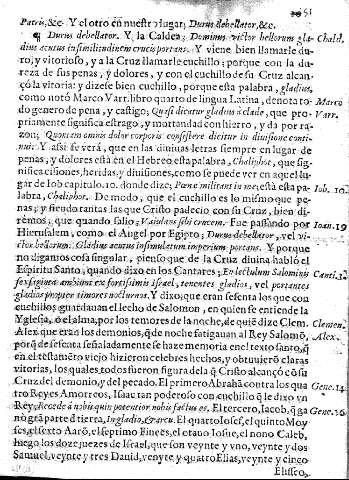 51
Patris, &c. Y el otro en nuestro lugar; Durus debellator, &c.
¶ Durus debellator. Y la Caldea; Dominus victor bellorum gla- Chald.
dius acutus in similitudinem crucis portans. Y viene bien llamarle du-
ro, y vitorioso, y a la Cruz llamarle cuchillo; porque con la du-
reza de sus penas, y dolores, y con el cuchillo de su Cruz alcan-
çó la vitoria: y dizese bien cuchillo, porque esta palabra, gladius,
como notó Marco Varr. libro quarto de lingua Latina, denota to- Marco
do genero de pena, y castigo; Quasi dicatur gladius à clade, que pro- Varr.
priamente significa estrago, y mortandad con hierro, y da por ra-
zon; Quoniam omnis dolor corporis consistere dicitur in divisione conti-
nui. Y assi se verá, que en las divinas letras siempre en lugar de
penas, y dolores está en el Hebreo esta palabra, Chaliphot, que sig-
nifica cisiones, heridas, y divisiones, como se puede ver en aquel lu-
gar de Iob capitulo. 10. donde dize; Pœnæ militant in me; està esta pa- Iob. 10.
labra, Chaliphot. De modo, que el cuchillo es lo mismo que pe-
nas; y siendo tantas las que Christo padecio con su Cruz, bien di-
remos, que quando salio; Vaiulans sibi crucem. Fue passando por Ioan. 19
Hierusalem, como el Angel por Egipto; Durus debellator, vel vi-
ctor bellorum. Gladius acutus insimulatum imperium portans. Y porque
no digamos cosa singular, pienso que de la Cruz divina habló el
Espiritu Santo, quando dixo en los Cantares; En lectulum Salominis Canti. 3.
sexaginta ambiunt ex fortissimis Israel, tenentes gladios, vel portantes
gladios propter timores nocturnos. Y dixo, que eran sesenta los que con
cuchillos guardauan el lecho de Salomon, en quien se entiende la
Yglesia, ò el alma, por los temores de la noche, de quiē dize Clem. Clemen.
Alex. que eran los demonios, q̃ de noche fatigauan al Rey Salomō, Alex.
porq̃ de sesenta señaladamente se haze memoria en el texto santo, q̃
en el testamēto viejo hizieron celebres hechos, y obtuuierō claras
vitorias, los quales todos fueron figura de la q̃ Christo alcançó cō su
Cruz del demonio, y del pecado. El primero Abrahā contra los qua Gene. 14
tro Reyes Amorreos, Isaac tan poderoso con cuchillo q̃ le dixo vn
Rey, Recede à nobis quia potentior nobis factus es. El tercero, Iacob, q̃ ga Gene. 26
nò grā parte d̃ tierra, In gladio, & arcu. El quarto Iosef, el quinto Moy-
ses, el sexto Aarō, el septimo Finees, el otauo Iosue, el nono Caleb,
luego los doze juezes de Israel, que son veynte y vno, veynte y dos
Samuel, veynte y tres Dauid, veynte y quatro Elias, veynte y cinco
Eliseo,